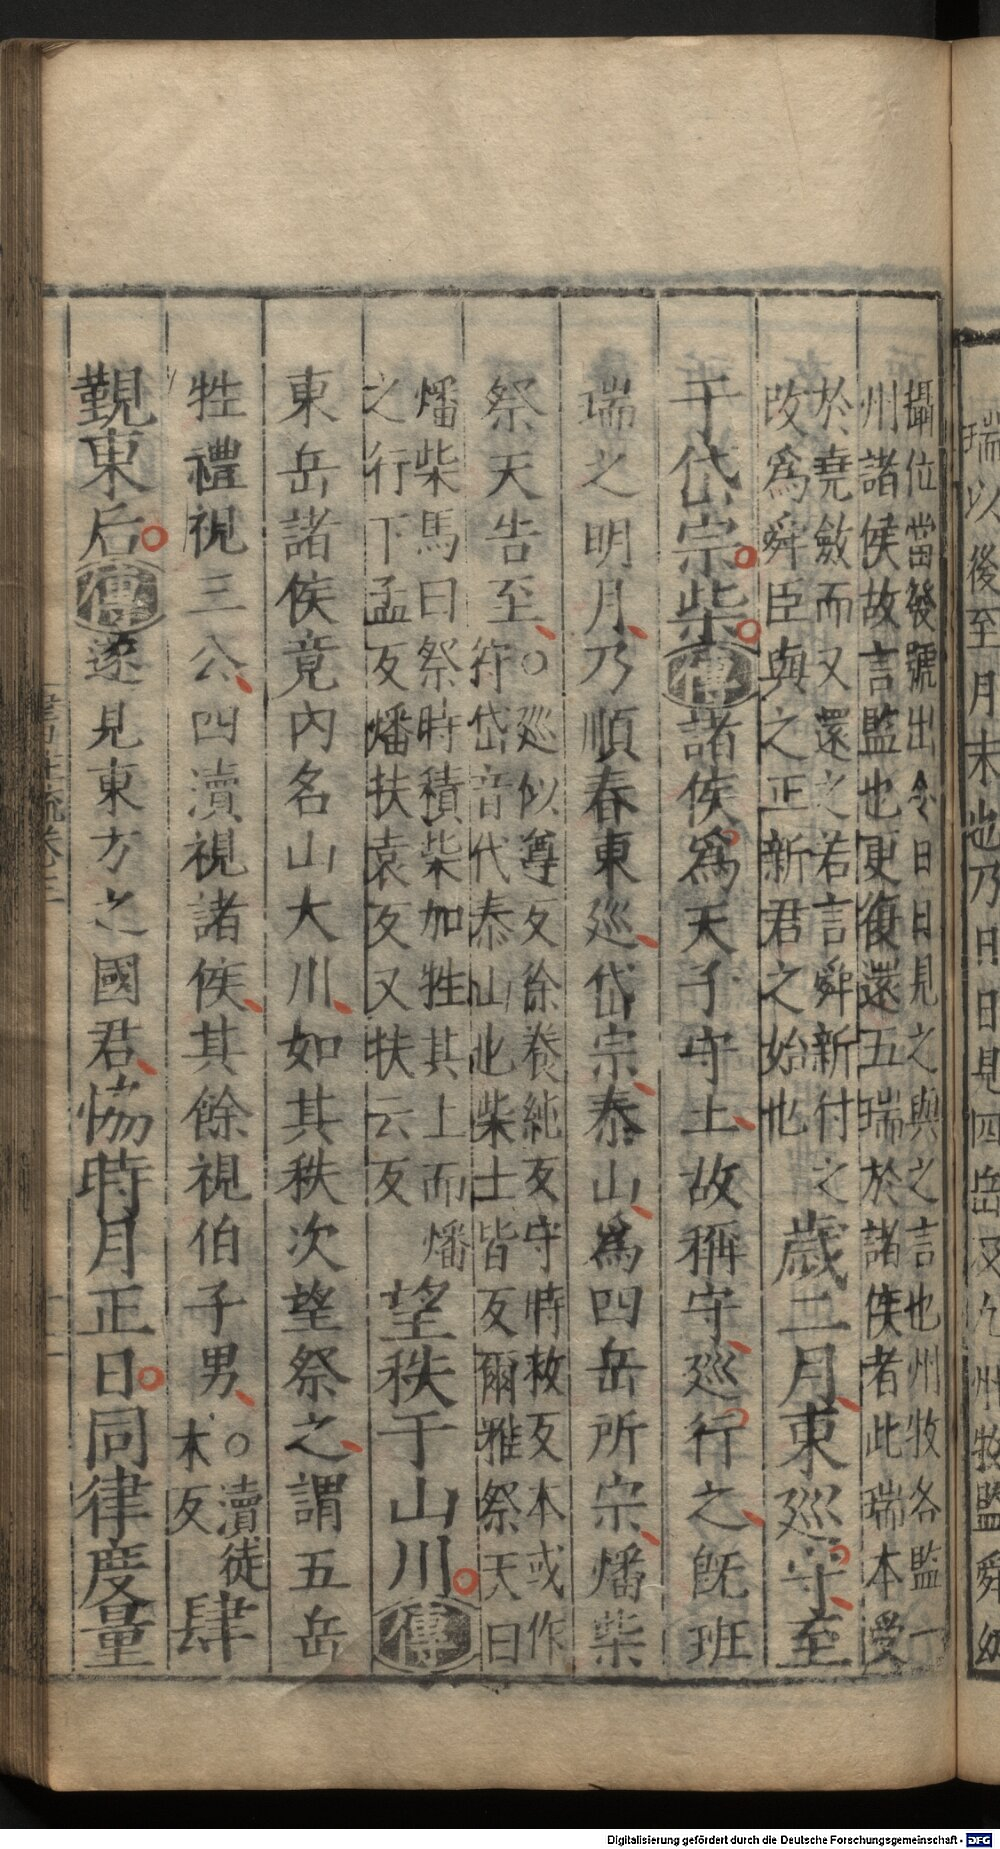 攝位當發號出令日日見之與之言也州牧各監一
州諸侯故言監也更復還五瑞於諸侯者此瑞本受
於堯斂而又還之若言舜新付之
改為舜臣與之正新君之始也
歲二月東廵守至
于岱宗柴傳諸侯為天子守土故稱守廵行之既班
瑞之明月乃順春東廵岱宗泰山為四岳所宗燔柴
祭天告至
○廵似尊反徐養純反守時救反本或作
狩岱音代泰山也柴士皆反爾雅祭天曰
燔柴馬曰祭時積柴加牲其上而燔
之行下孟反燔扶袁反又扶云反
望秩于山川傳
東岳諸侯竟內名山大川如其秩次望祭之謂五岳
牲禮視三公四瀆視諸侯其餘視伯子男
○瀆徒
木反
肆
覲東后傳遂見東方之國君協時月正日同律度量
瑞以後至月末也乃日日見四岳及九州牧監舜初
Digitalisierung gefördert durch die Deutsche Forschungsgemeinschaft - DFG